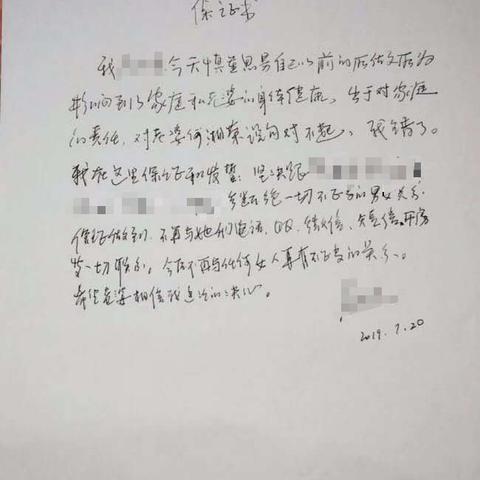 保证书
我 今天慎重思考自己以前的所作所为
影响到了家庭和老婆的身体健康。出于对家庭
的责任，对老婆何湘 说句对不起，我错了。
我在这里保证和发誓：坚决跟
断绝一切不正当的男女关系
保证做到，不再与她们电话、QQ、微信、短信、开房
等一切联系。今后不再与任何女人再有不正当的关系。
希望老婆相信我这次的决心。
2019.7.20